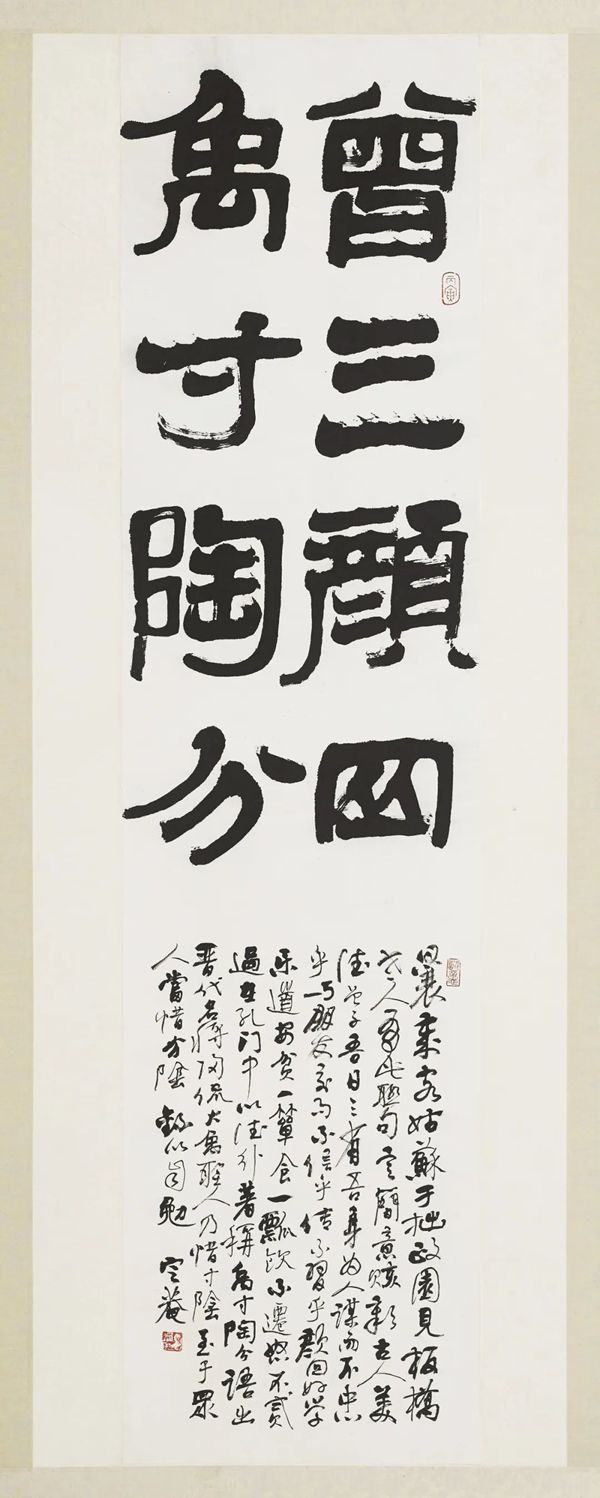 曾三顏四
禹寸陶分
丙寅
曩歲客姑蘇于拙政園見板橋
老人書此聯句言簡意賅彰古人美
德曾子吾日三省吾身為人謀而不忠
乎与朋友交而不信乎傳不習乎顏回好学
樂道安贫一簞食一瓢飲不遷怒不貳
過在孔門中以德行著稱禹寸陶分語出
晉代名將陶侃大禹聖人乃惜寸陰至于眾
人當惜分陰 錄以自勉 定菴